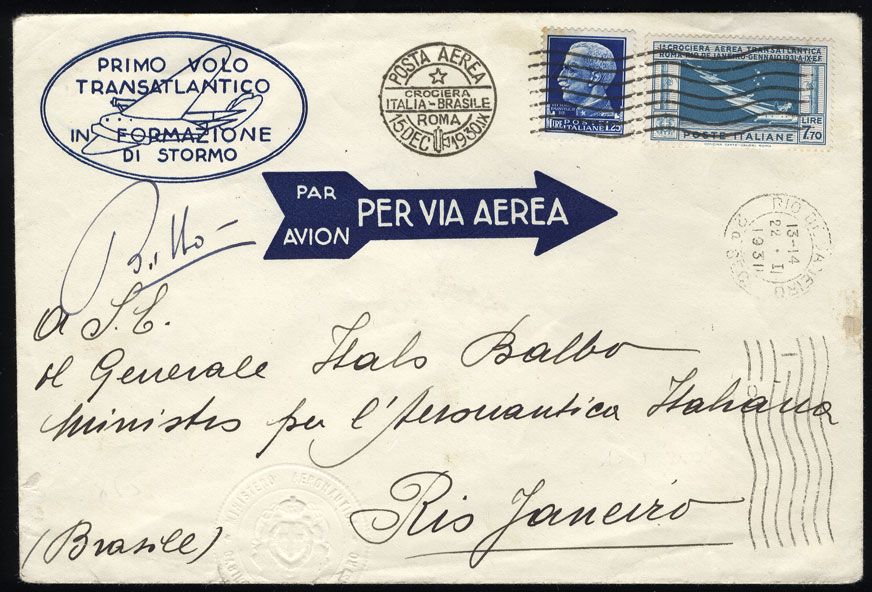 PRIMO VOLO
TRANSATLANTICO
IN FORMAZIONE
DI STORMO
POSTA AEREA
CROCIERA
ITALIA-BRASILE
ROMA
15 DEC 1930.IX
POSTE
ITALIANE
LIRE 1,25
Iª CROCIERA AEREA TRANSATLANTICA
ROMA-RIO DE JANEIRO-GENNAIO 1931-A.IX.E.F.
POSTE ITALIANE
LIRE
7,70
PAR
AVION
PER VIA AEREA
RIO DE JANEIRO
13-14
22 . I
1931
a S. E.
il Generale Italo Balbo
Ministro per l'Aeronautica Italiana
Rio Janeiro
(Brasile)
MINISTERO AERONAUTICA